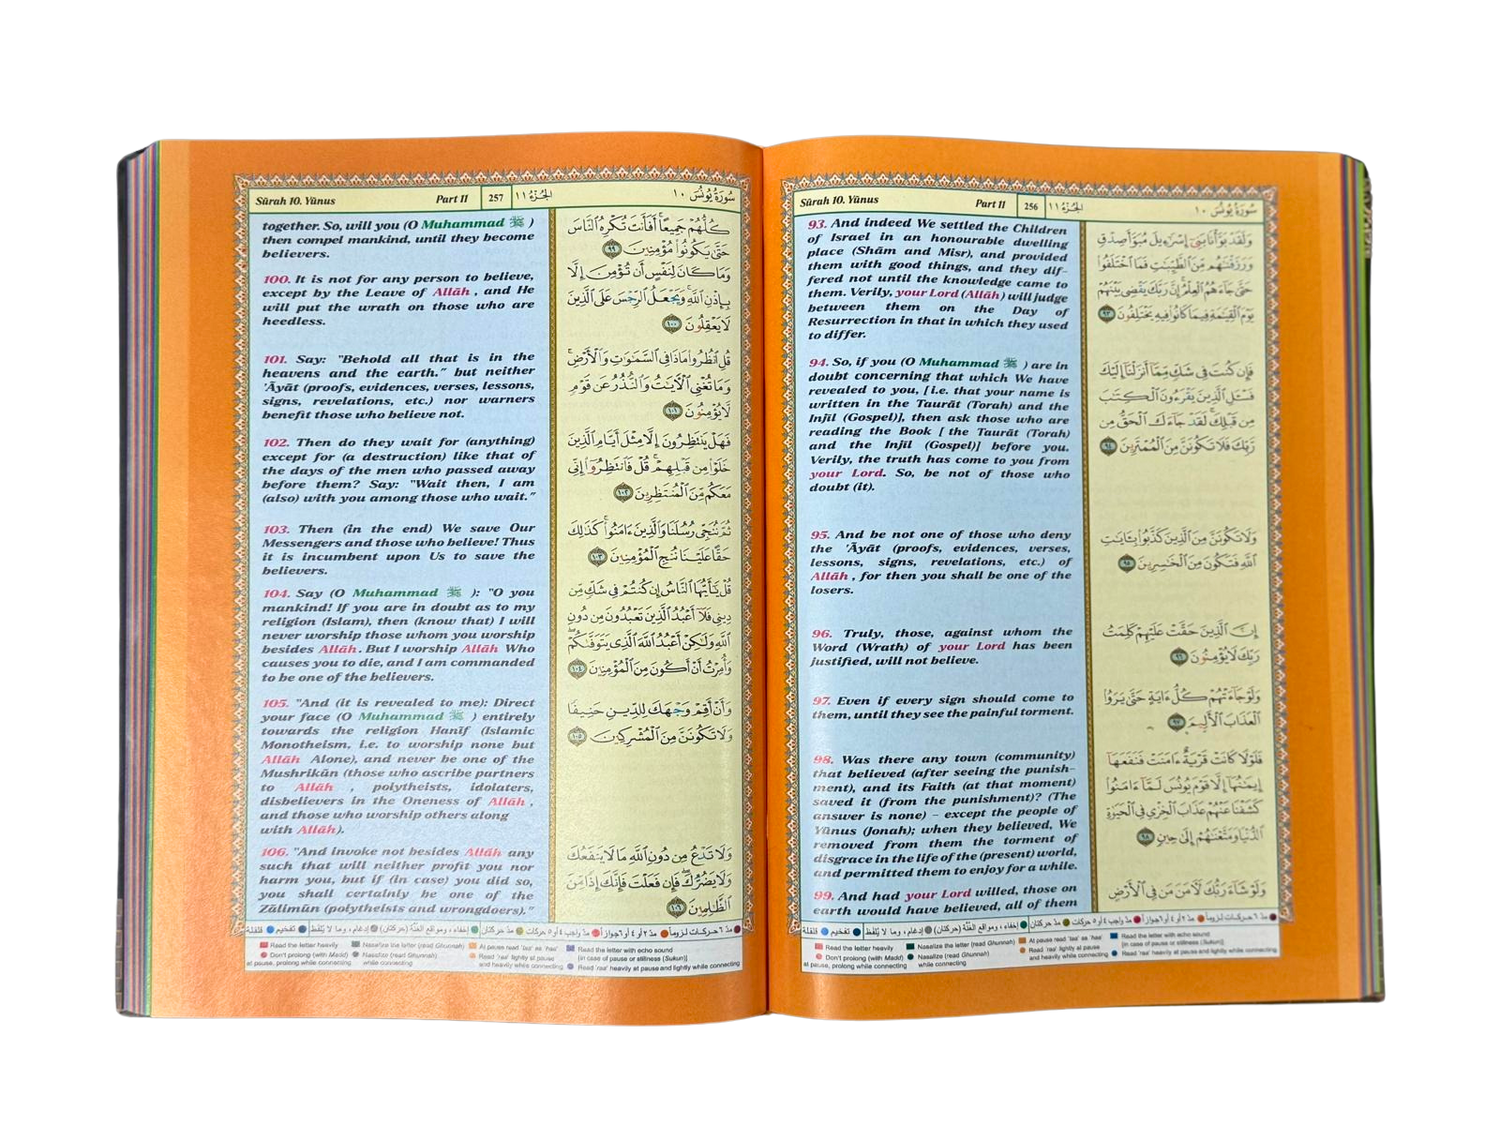 Sûrah 10. Yûnus Part 11 256 الجُزْءُ ١١ سُورَةُ يُونُسَ ١٠
93. And indeed We settled the Children
of Israel in an honourable dwelling
place (Shâm and Misr), and provided
them with good things, and they dif-
fered not until the knowledge came to
them. Verily, your Lord (Allâh) will judge
between them on the Day of
Resurrection in that in which they used
to differ.
94. So, if you (O Muhammad ﷺ ) are in
doubt concerning that which We have
revealed to you, [i.e. that your name is
written in the Taurât (Torah) and the
Injîl (Gospel)], then ask those who are
reading the Book [ the Taurât (Torah)
and the Injîl (Gospel)] before you.
Verily, the truth has come to you from
your Lord. So, be not of those who
doubt (it).
95. And be not one of those who deny
the 'Âyât (proofs, evidences, verses,
lessons, signs, revelations, etc.) of
Allâh , for then you shall be one of the
losers.
96. Truly, those, against whom the
Word (Wrath) of your Lord has been
justified, will not believe.
97. Even if every sign should come to
them, until they see the painful torment.
98. Was there any town (community)
that believed (after seeing the punish-
ment), and its Faith (at that moment)
saved it (from the punishment)? (The
answer is none) – except the people of
Yûnus (Jonah); when they believed, We
removed from them the torment of
disgrace in the life of the (present) world,
and permitted them to enjoy for a while.
99. And had your Lord willed, those on
earth would have believed, all of them
وَلَقَدْ بَوَّأْنَا بَنِىٓ إِسْرَٰٓءِيلَ مُبَوَّأَ صِدْقٍ
وَرَزَقْنَٰهُم مِّنَ ٱلطَّيِّبَٰتِ فَمَا ٱخْتَلَفُوا۟
حَتَّىٰ جَآءَهُمُ ٱلْعِلْمُ إِنَّ رَبَّكَ يَقْضِى بَيْنَهُمْ
يَوْمَ ٱلْقِيَٰمَةِ فِيمَا كَانُوا۟ فِيهِ يَخْتَلِفُونَ ٩٣
فَإِن كُنتَ فِى شَكٍّ مِّمَّآ أَنزَلْنَآ إِلَيْكَ
فَسْـَٔلِ ٱلَّذِينَ يَقْرَءُونَ ٱلْكِتَٰبَ
مِن قَبْلِكَ لَقَدْ جَآءَكَ ٱلْحَقُّ مِن
رَّبِّكَ فَلَا تَكُونَنَّ مِنَ ٱلْمُمْتَرِينَ ٩٤
وَلَا تَكُونَنَّ مِنَ ٱلَّذِينَ كَذَّبُوا۟ بِـَٔايَٰتِ
ٱللَّهِ فَتَكُونَ مِنَ ٱلْخَٰسِرِينَ ٩٥
إِنَّ ٱلَّذِينَ حَقَّتْ عَلَيْهِمْ كَلِمَتُ
رَبِّكَ لَا يُؤْمِنُونَ ٩٦
وَلَوْ جَآءَتْهُمْ كُلُّ ءَايَةٍ حَتَّىٰ يَرَوُا۟
ٱلْعَذَابَ ٱلْأَلِيمَ ٩٧
فَلَوْلَا كَانَتْ قَرْيَةٌ ءَامَنَتْ فَنَفَعَهَآ
إِيمَٰنُهَآ إِلَّا قَوْمَ يُونُسَ لَمَّآ ءَامَنُوا۟
كَشَفْنَا عَنْهُمْ عَذَابَ ٱلْخِزْىِ فِى ٱلْحَيَوٰةِ
ٱلدُّنْيَا وَمَتَّعْنَٰهُمْ إِلَىٰ حِينٍ ٩٨
وَلَوْ شَآءَ رَبُّكَ لَءَامَنَ مَن فِى ٱلْأَرْضِ
مدّ ٦ حركـات لـزوماً مدّ ٢ أو ٤ أو ٦ جوازاً مدّ واجب ٤ أو ٥ حركات مدّ حركتان إخفاء، ومواقع الغُنَّة (حركتان) إدغام، وما لا يُلفَظ تفخيم قلقلة
Read the letter heavily
Don't prolong (with Madd)
at pause, prolong while connecting
Nasalize the letter (read Ghunnah)
Nasalize (read Ghunnah)
while connecting
At pause read 'taa' as 'haa'
Read 'raa' lightly at pause
and heavily while connecting
Read the letter with echo sound
[in case of pause or stillness (Sukun)]
Read 'raa' heavily at pause and lightly while connecting
Sûrah 10. Yûnus Part 11 257 الجُزْءُ ١١ سُورَةُ يُونُسَ ١٠
together. So, will you (O Muhammad ﷺ )
then compel mankind, until they become
believers.
100. It is not for any person to believe,
except by the Leave of Allâh , and He
will put the wrath on those who are
heedless.
101. Say: "Behold all that is in the
heavens and the earth." but neither
'Âyât (proofs, evidences, verses, lessons,
signs, revelations, etc.) nor warners
benefit those who believe not.
102. Then do they wait for (anything)
except for (a destruction) like that of
the days of the men who passed away
before them? Say: "Wait then, I am
(also) with you among those who wait."
103. Then (in the end) We save Our
Messengers and those who believe! Thus
it is incumbent upon Us to save the
believers.
104. Say (O Muhammad ﷺ ): "O you
mankind! If you are in doubt as to my
religion (Islam), then (know that) I will
never worship those whom you worship
besides Allâh. But I worship Allâh Who
causes you to die, and I am commanded
to be one of the believers.
105. "And (it is revealed to me): Direct
your face (O Muhammad ﷺ ) entirely
towards the religion Hanîf (Islamic
Monotheism, i.e. to worship none but
Allâh Alone), and never be one of the
Mushrikûn (those who ascribe partners
to Allâh , polytheists, idolaters,
disbelievers in the Oneness of Allâh ,
and those who worship others along
with Allâh).
106. "And invoke not besides Allâh any
such that will neither profit you nor
harm you, but if (in case) you did so,
you shall certainly be one of the
Zâlimûn (polytheists and wrongdoers)."
كُلُّهُمْ جَمِيعًا أَفَأَنتَ تُكْرِهُ ٱلنَّاسَ
حَتَّىٰ يَكُونُوا۟ مُؤْمِنِينَ ٩٩
وَمَا كَانَ لِنَفْسٍ أَن تُؤْمِنَ إِلَّا
بِإِذْنِ ٱللَّهِ وَيَجْعَلُ ٱلرِّجْسَ عَلَى ٱلَّذِينَ
لَا يَعْقِلُونَ ١٠٠
قُلِ ٱنظُرُوا۟ مَاذَا فِى ٱلسَّمَٰوَٰتِ وَٱلْأَرْضِ
وَمَا تُغْنِى ٱلْـَٔايَٰتُ وَٱلنُّذُرُ عَن قَوْمٍ
لَّا يُؤْمِنُونَ ١٠١
فَهَلْ يَنتَظِرُونَ إِلَّا مِثْلَ أَيَّامِ ٱلَّذِينَ
خَلَوْا۟ مِن قَبْلِهِمْ قُلْ فَٱنتَظِرُوٓا۟ إِنِّى
مَعَكُم مِّنَ ٱلْمُنتَظِرِينَ ١٠٢
ثُمَّ نُنَجِّى رُسُلَنَا وَٱلَّذِينَ ءَامَنُوا۟ كَذَٰلِكَ
حَقًّا عَلَيْنَا نُنجِ ٱلْمُؤْمِنِينَ ١٠٣
قُلْ يَٰٓأَيُّهَا ٱلنَّاسُ إِن كُنتُمْ فِى شَكٍّ مِّن
دِينِى فَلَآ أَعْبُدُ ٱلَّذِينَ تَعْبُدُونَ مِن دُونِ
ٱللَّهِ وَلَٰكِنْ أَعْبُدُ ٱللَّهَ ٱلَّذِى يَتَوَفَّىٰكُمْ
وَأُمِرْتُ أَنْ أَكُونَ مِنَ ٱلْمُؤْمِنِينَ ١٠٤
وَأَنْ أَقِمْ وَجْهَكَ لِلدِّينِ حَنِيفًا
وَلَا تَكُونَنَّ مِنَ ٱلْمُشْرِكِينَ ١٠٥
وَلَا تَدْعُ مِن دُونِ ٱللَّهِ مَا لَا يَنفَعُكَ
وَلَا يَضُرُّكَ فَإِن فَعَلْتَ فَإِنَّكَ إِذًا مِّنَ
ٱلظَّٰلِمِينَ ١٠٦
مدّ ٦ حركـات لـزوماً مدّ ٢ أو ٤ أو ٦ جوازاً مدّ واجب ٤ أو ٥ حركات مدّ حركتان إخفاء، ومواقع الغُنَّة (حركتان) إدغام، وما لا يُلفَظ تفخيم قلقلة
Read the letter heavily
Don't prolong (with Madd)
at pause, prolong while connecting
Nasalize the letter (read Ghunnah)
Nasalize (read Ghunnah)
while connecting
At pause read 'taa' as 'haa'
Read 'raa' lightly at pause
and heavily while connecting
Read the letter with echo sound
[in case of pause or stillness (Sukun)]
Read 'raa' heavily at pause and lightly while connecting